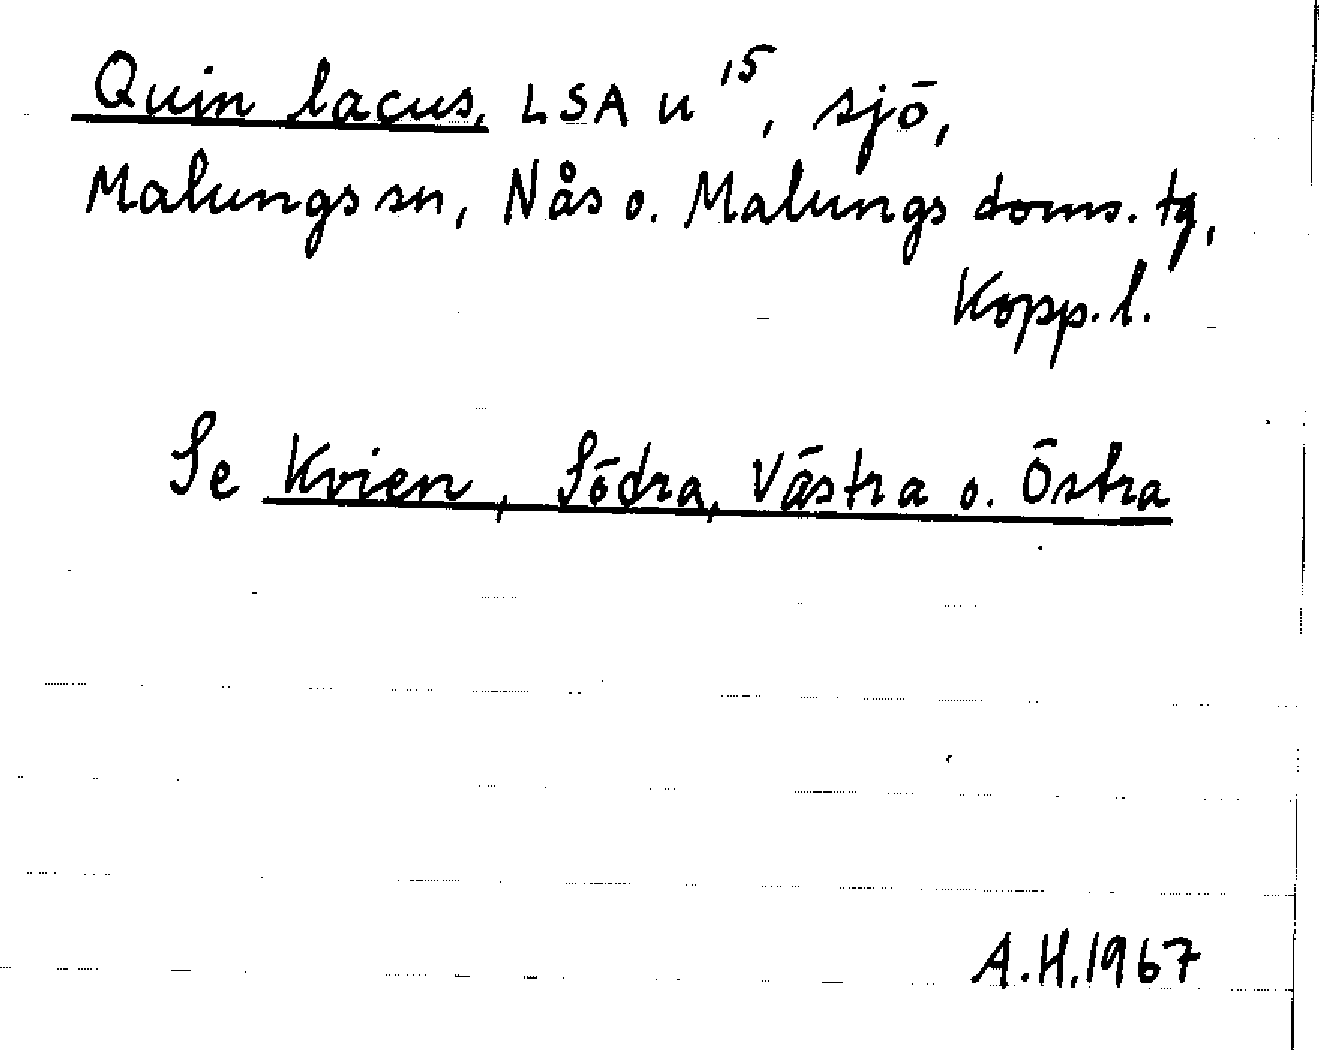 Quin lacus, LSA u 15, sjö,
Malungs sn, Nås o. Malungs doms. tg,
Kopp. l.
Se Kvien, Södra, Västra o. Östra
A.H. 1967